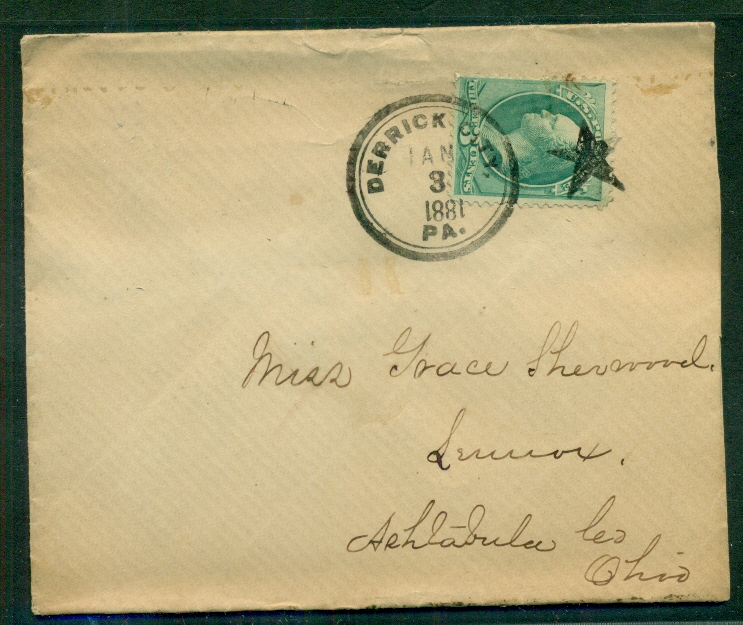 DERRICK CITY.
JAN
3
1881
PA.
Miss Grace Sherwood.
Lennox.
Ashtabula Co
Ohio